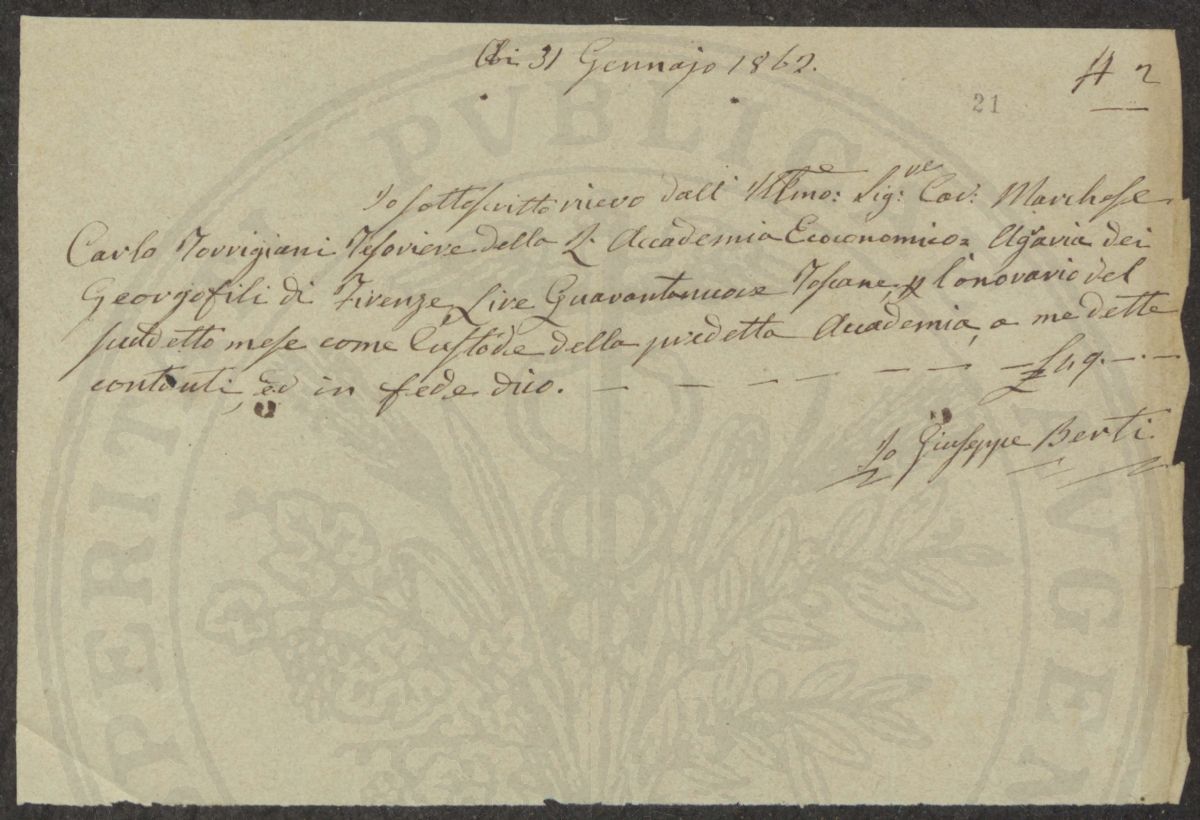 Adi 31 Gennajo 1862.
# 2
21
Io sottoscritto ricevo dall' Illmo: Sig:re Cav: Marchese
Carlo Torrigiani Tesoriere della R. Accademia Economico= Agraria dei
Georgofili di Firenze, Lire Quarantanove Toscane, p l'onorario del
suddetto mese come Custode della predetta Accademia, a me dette
contanti, ed in fede dico. — — — — — — — £ 49. — . —
Io Giuseppe Berti.
PROSPERITATI PVBLICAE AVGENDAE